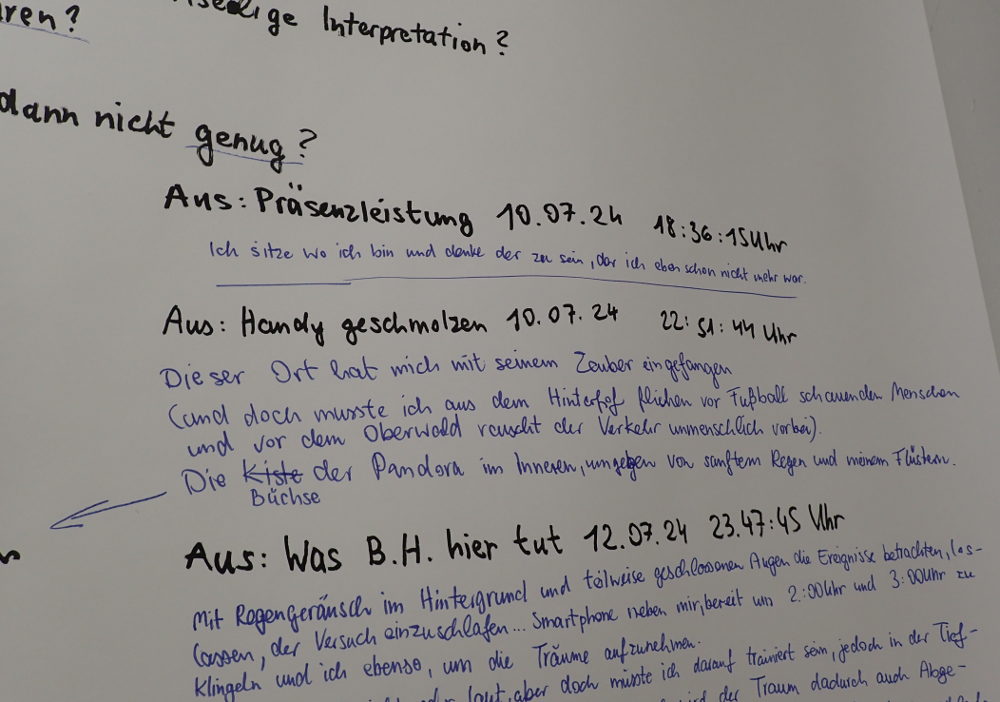 ren?
ige Interpretation?
dann nicht genug?
Aus: Präsenzleistung 10.07.24 18:36:15Uhr
Ich sitze wo ich bin und denke der zu sein, der ich eben schon nicht mehr war.
Aus: Handy geschmolzen 10.07.24 22:51:44 Uhr
Dieser Ort hat mich mit seinem Zauber eingefangen
(und doch musste ich aus dem Hinterhof fliehen vor Fußball schauenden Menschen
und vor dem Oberwald rauscht der Verkehr unmenschlich vorbei).
Die Kiste der Pandora im Inneren, umgeben von sanftem Regen und meinem Flüstern.
Büchse
Aus: Was B.H. hier tut 12.07.24 23.47:45 Uhr
Mit Regengeräusch im Hintergrund und teilweise geschlossenen Augen die Ereignisse betrachten, los-
lassen, der Versuch einzuschlafen... Smartphone neben mir, bereit um 2:00Uhr und 3:00Uhr zu
klingeln und ich ebenso, um die Träume aufzunehmen.
laut, aber doch müsste ich darauf trainiert sein, jedoch in der Tief-
der Traum dadurch auch Abge-